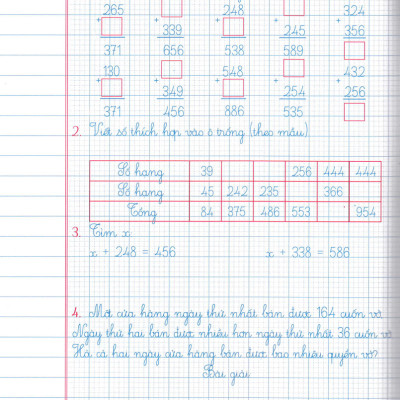 265 248 324
+ + 339 + + 245 + 356
371 656 538 589
130 548 432
+ + 349 + + 254 + 256
371 456 886 535
2. Viết số thích hợp vào ô trống (theo mẫu)
Số hạng 39 256 444 444
Số hạng 45 242 235 366
Tổng 84 375 486 553 954
3. Tìm x:
x + 248 = 456 x + 338 = 586
4. Một cửa hàng ngày thứ nhất bán được 164 cuốn vở
Ngày thứ hai bán được nhiều hơn ngày thứ nhất 36 cuốn vở
Hỏi cả hai ngày cửa hàng bán được bao nhiêu quyển vở?
Bài giải